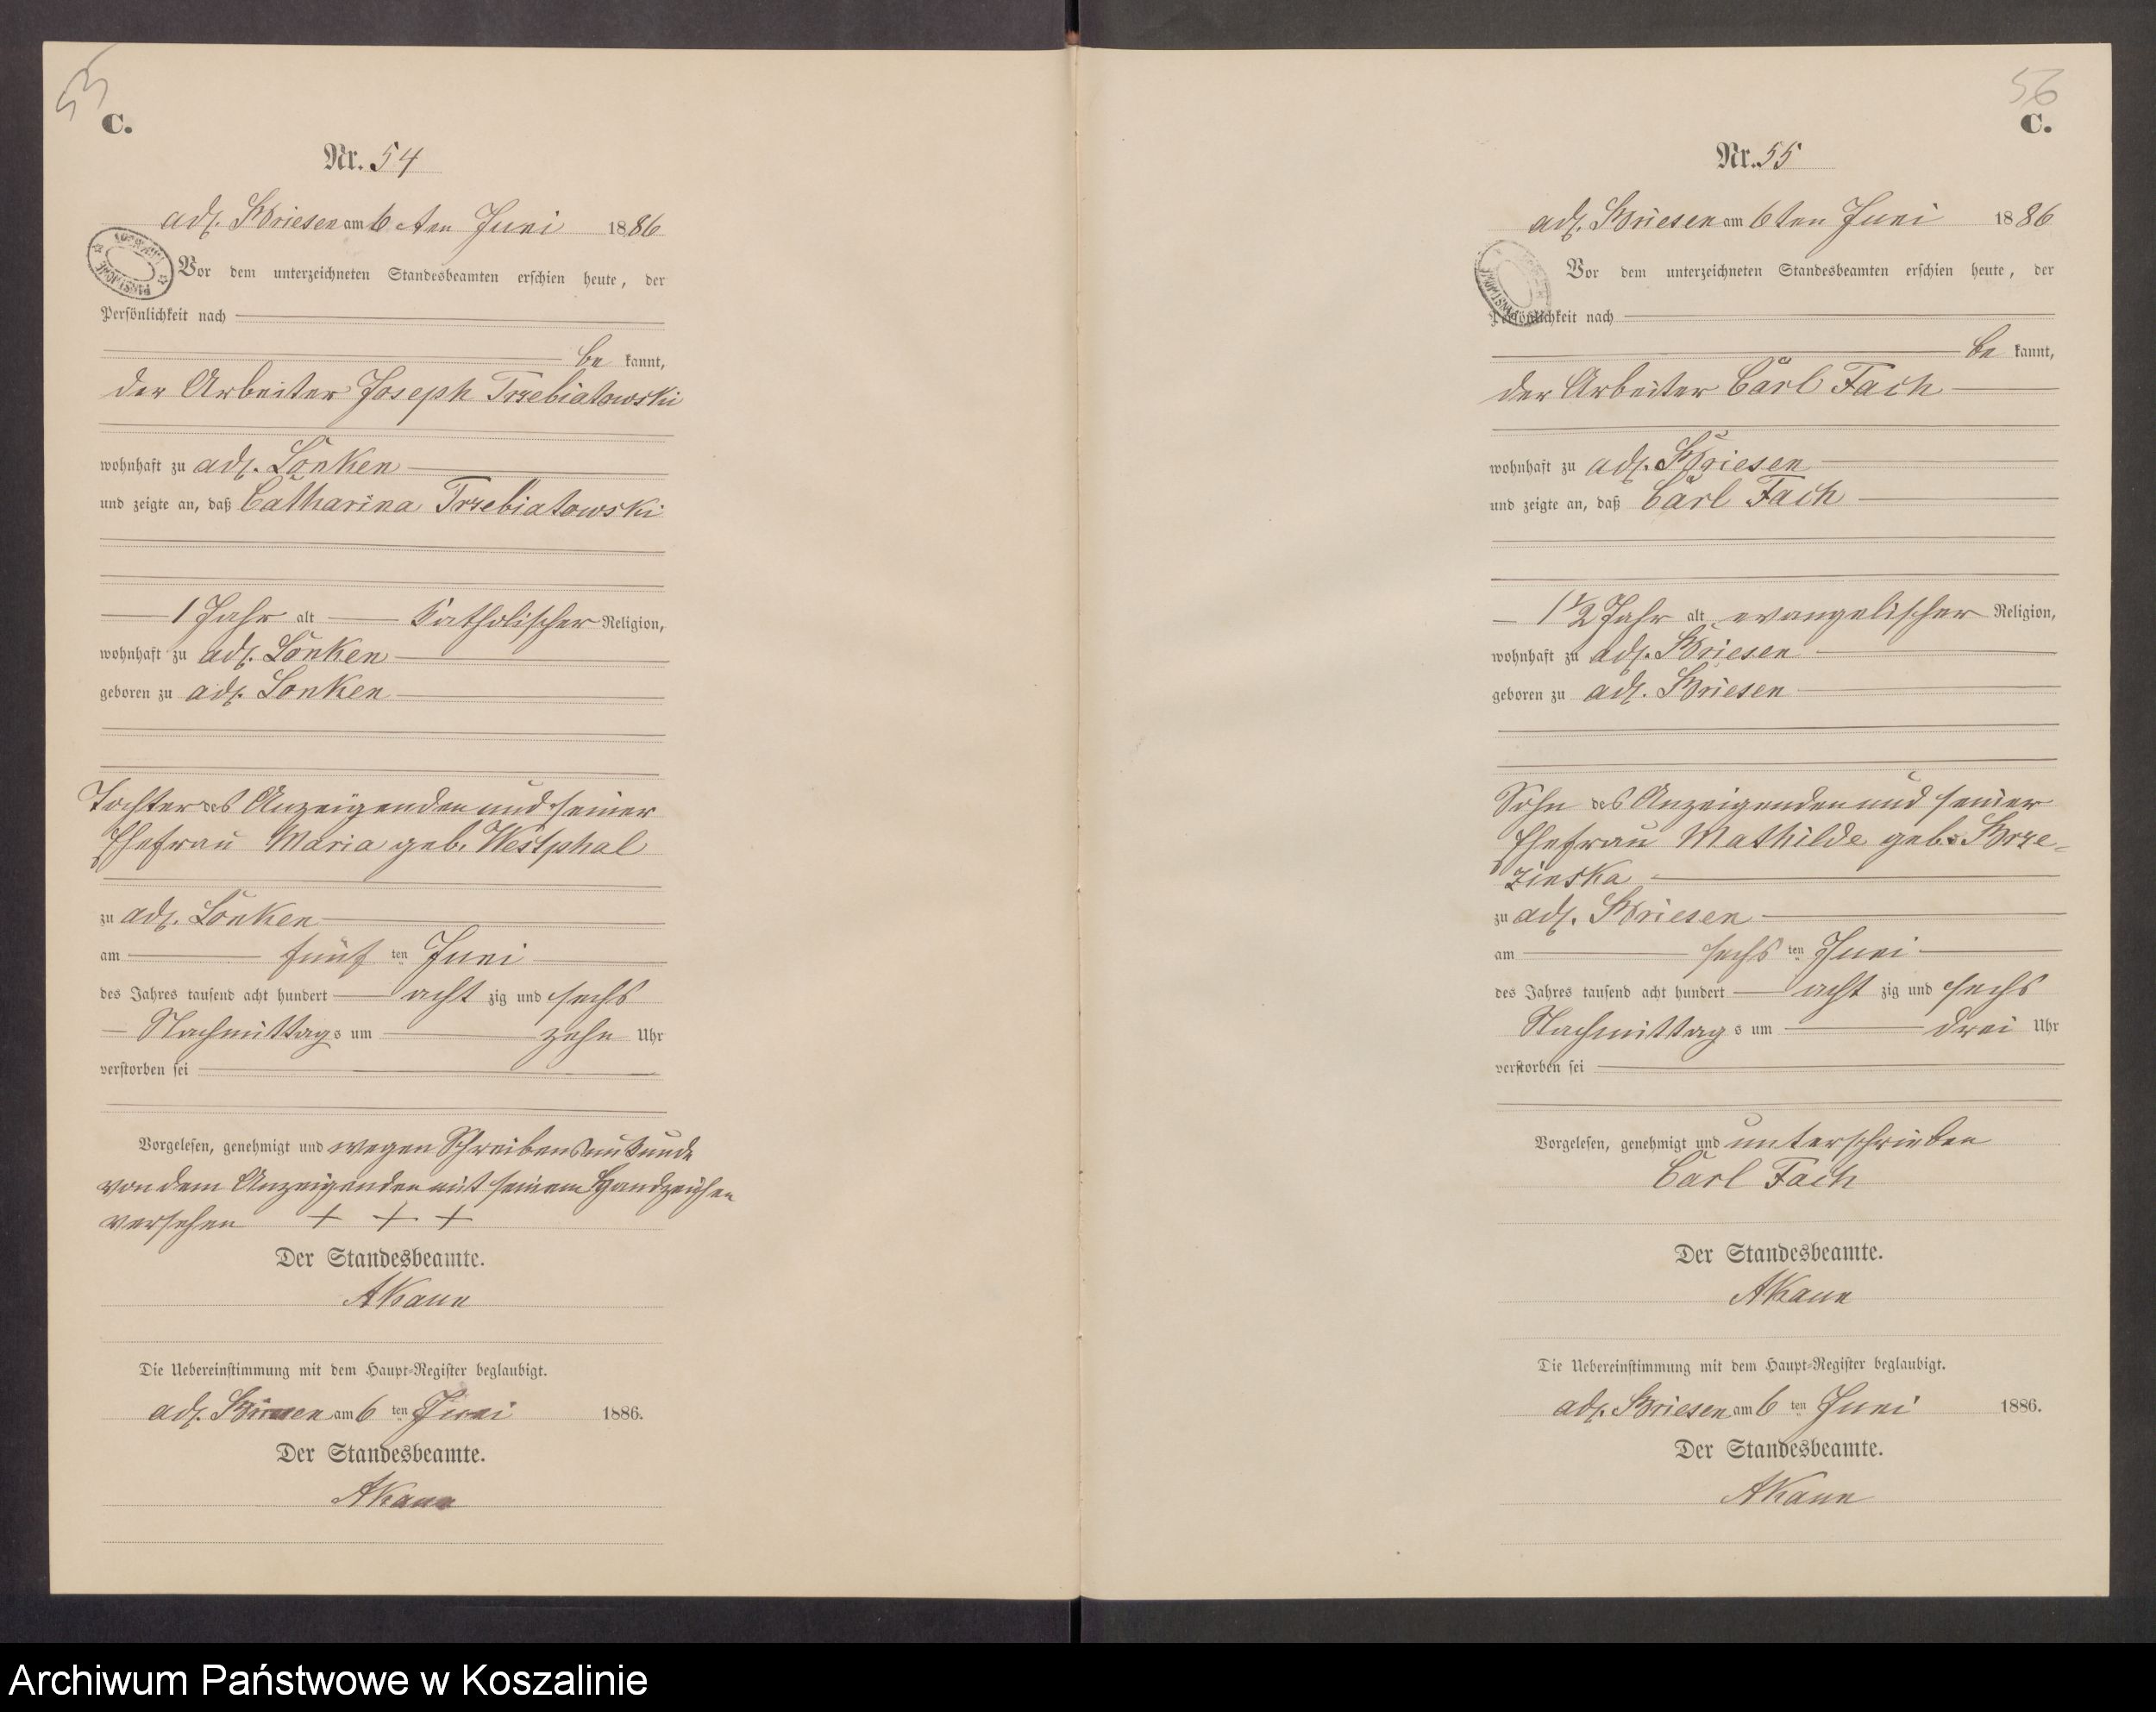 53
C.
Nr. 54
adl. Briesen am 6 ten Juni 1886
Vor dem unterzeichneten Standesbeamten erschien heute, der
Persönlichkeit nach
be kannt,
der Arbeiter Joseph Trzebiatowski
wohnhaft zu adl. Lonken
und zeigte an, daß Catharina Trzebiatowski
1 Jahr alt katholischer Religion,
wohnhaft zu adl. Lonken
geboren zu adl. Lonken
Tochter des Anzeigenden und seiner
Ehefrau Maria geb. Westphal
zu adl. Lonken
am fünf ten Juni
des Jahres tausend acht hundert acht zig und sechs
Nachmittags um zehn Uhr
verstorben sei
Vorgelesen, genehmigt und wegen Schreibensunkunde
von dem Anzeigenden mit seinem Handzeichen
versehen + + +
Der Standesbeamte.
AKann
Die Uebereinstimmung mit dem Haupt-Register beglaubigt.
adl. Briesen am 6 ten Juni 1886.
Der Standesbeamte.
AKann
56
C.
Nr. 55
adl. Briesen am 6ten Juni 1886
Vor dem unterzeichneten Standesbeamten erschien heute, der
Persönlichkeit nach
be kannt,
der Arbeiter Carl Fach
wohnhaft zu adl. Briesen
und zeigte an, daß Carl Fach
1 1/2 Jahr alt evangelischer Religion,
wohnhaft zu adl. Briesen
geboren zu adl. Briesen
Sohn des Anzeigenden und seiner
Ehefrau Mathilde geb. Brze-
zinska
zu adl. Briesen
am sechs ten Juni
des Jahres tausend acht hundert acht zig und sechs
Nachmittags um drei Uhr
verstorben sei
Vorgelesen, genehmigt und unterschrieben
Carl Fach
Der Standesbeamte.
AKann
Die Uebereinstimmung mit dem Haupt-Register beglaubigt.
adl. Briesen am 6 ten Juni 1886.
Der Standesbeamte.
AKann
Archiwum Państwowe w Koszalinie